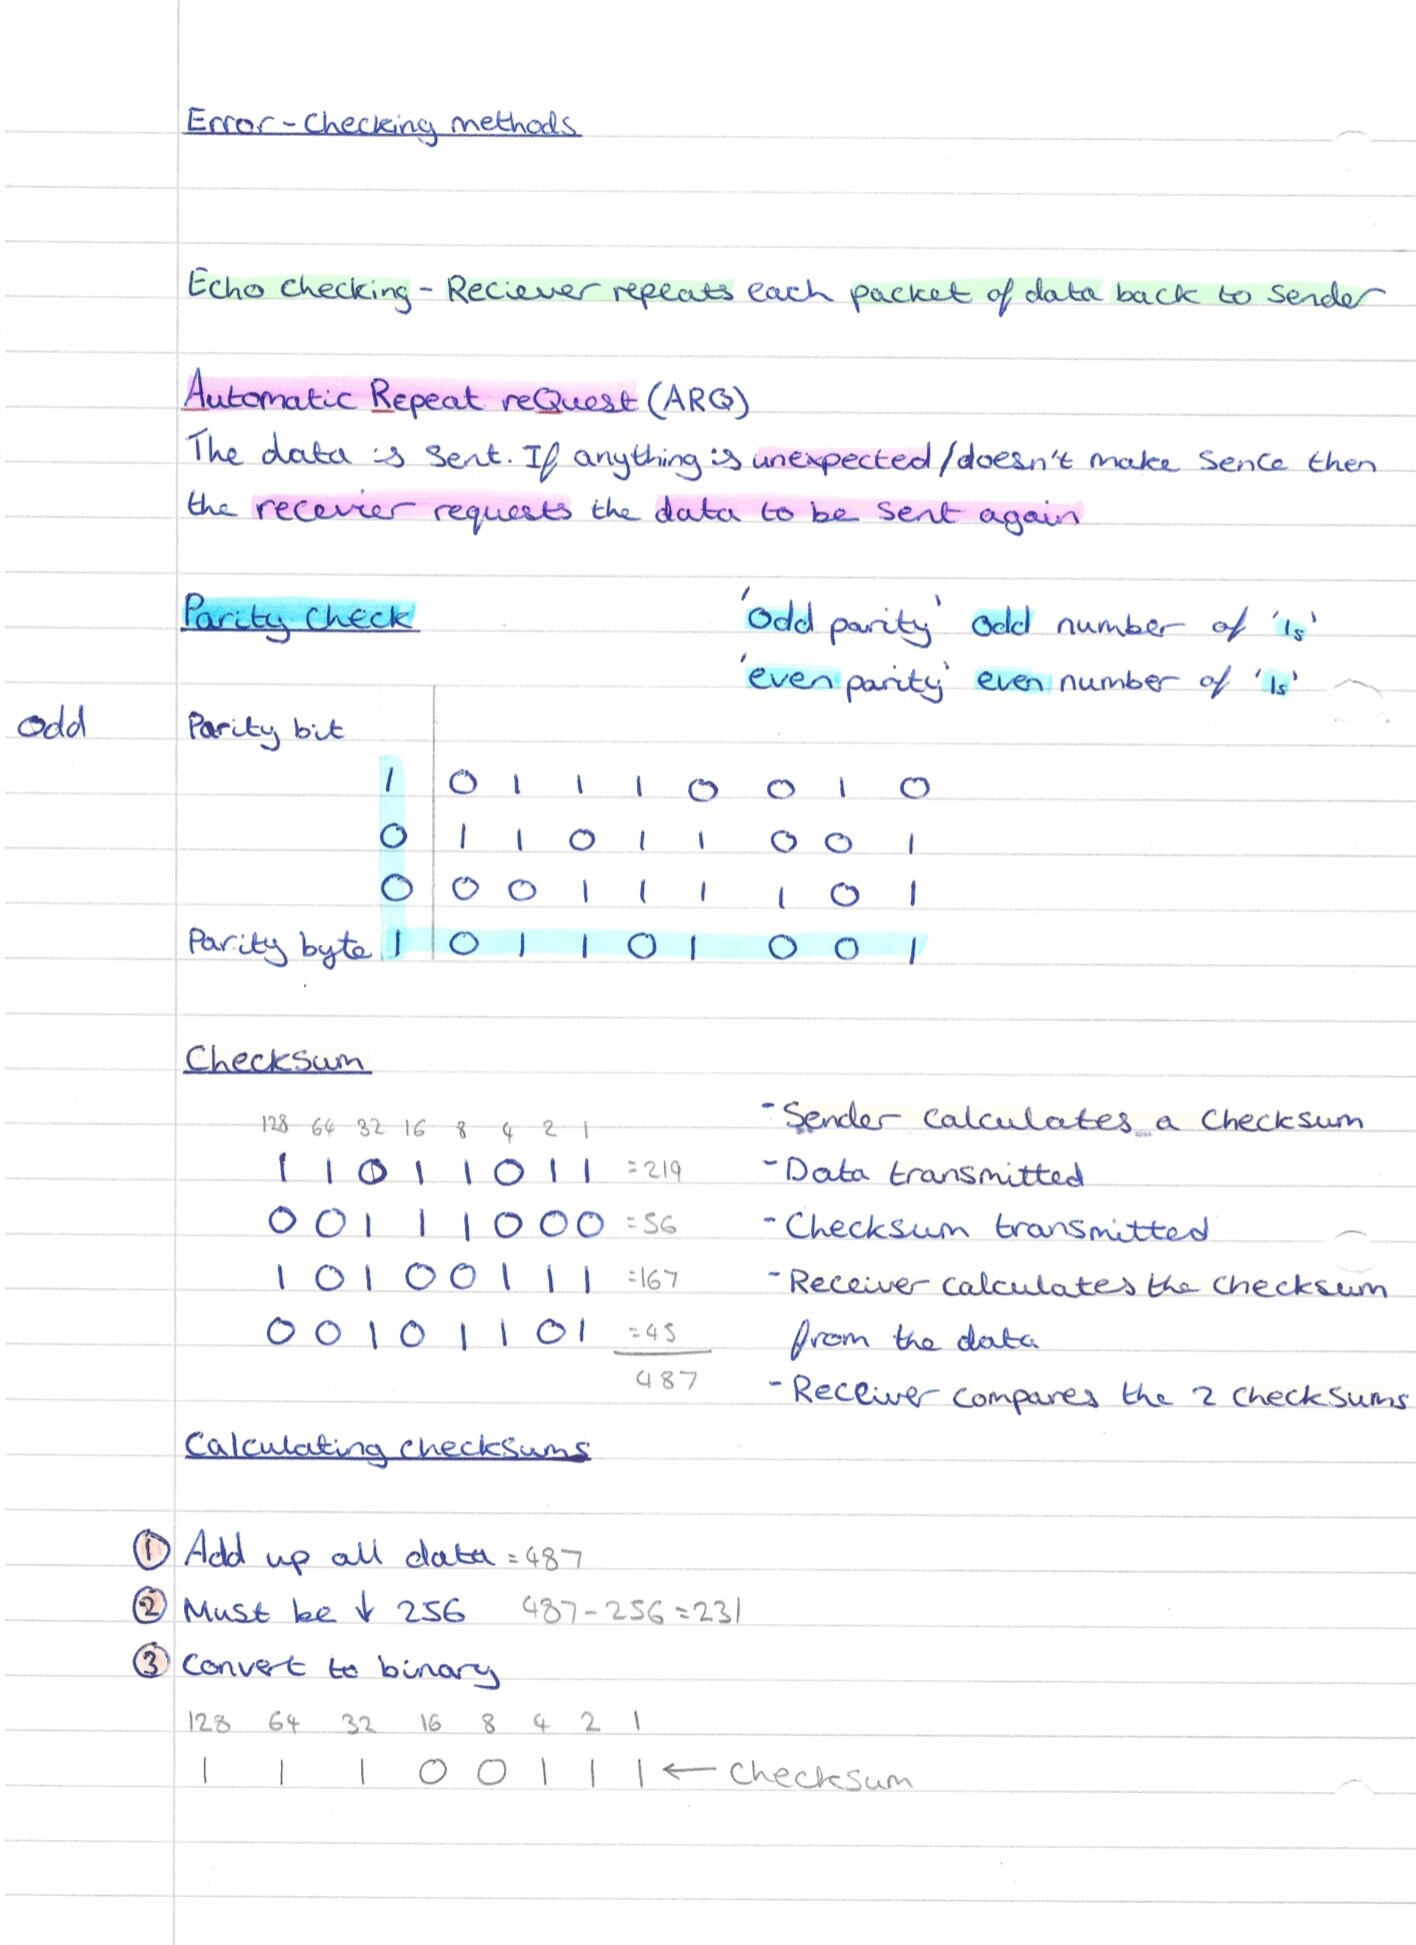 Error-Checking methods
Echo checking - Reciever repeats each packet of data back to sender
Automatic Repeat reQuest (ARQ)
The data is sent. If anything is unexpected/doesn't make sence then
the recevier requests the data to be sent again
Parity Check
'odd parity' odd number of '1s'
'even parity' even number of '1s'
odd Parity bit
1 0 1 1 1 0 0 1 0
0 1 1 0 1 1 0 0 1
0 0 0 1 1 1 1 0 1
Parity byte 1 0 1 1 0 1 0 0 1
Checksum
128 64 32 16 8 4 2 1
1 1 0 1 1 0 1 1 =219
0 0 1 1 1 0 0 0 =56
1 0 1 0 0 1 1 1 =167
0 0 1 0 1 1 0 1 =45
487
- Sender calculates a checksum
- Data transmitted
- Checksum transmitted
- Receiver calculates the checksum
from the data
- Receiver compares the 2 checksums
Calculating checksums
① Add up all data = 487
② Must be ↓ 256 487-256=231
③ Convert to binary
128 64 32 16 8 4 2 1
1 1 1 0 0 1 1 1 ← checksum